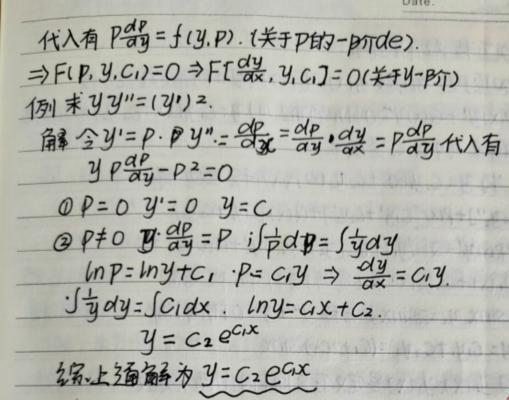 Date.
代入有 P dp/dy = f(y,p). (关于P的一阶de).
⇒F(P,y,C₁)=0 ⇒F[dy/dx, y, C₁]=0(关于y一阶)
例 求 yy″=(y′)².
解 令y′=P. y″=dp/dx=dp/dy·dy/dx=P dp/dy 代入有
y P dp/dy - P²=0
① P=0 y′=0 y=C
② P≠0 y·dp/dy=P ∫1/P dp=∫1/y dy
lnP=lny+C₁ ·P=C₁y ⇒ dy/dx=C₁y.
·∫1/y dy=∫C₁dx lny=C₁x+C₂.
y=C₂e^C₁x
综上通解为 y=C₂e^C₁x